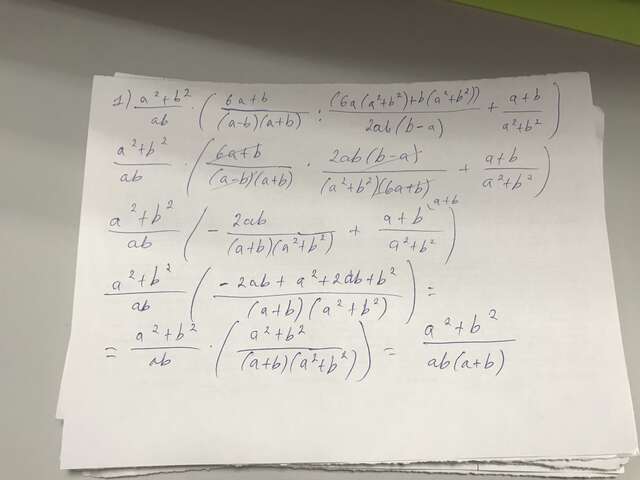 1) \frac{a^2+b^2}{ab} \cdot \left( \frac{6a+b}{(a-b)(a+b)} : \frac{(6a(a^2+b^2)+b(a^2+b^2))}{2ab(b-a)} + \frac{a+b}{a^2+b^2} \right)
\frac{a^2+b^2}{ab} \cdot \left( \frac{6a+b}{(a-b)(a+b)} \cdot \frac{2ab(b-a)}{(a^2+b^2)(6a+b)} + \frac{a+b}{a^2+b^2} \right)
\frac{a^2+b^2}{ab} \left( -\frac{2ab}{(a+b)(a^2+b^2)} + \frac{a+b^{\backslash a+b}}{a^2+b^2} \right)
\frac{a^2+b^2}{ab} \left( \frac{-2ab+a^2+2ab+b^2}{(a+b)(a^2+b^2)} \right) =
= \frac{a^2+b^2}{ab} \cdot \left( \frac{a^2+b^2}{(a+b)(a^2+b^2)} \right) = \frac{a^2+b^2}{ab(a+b)}